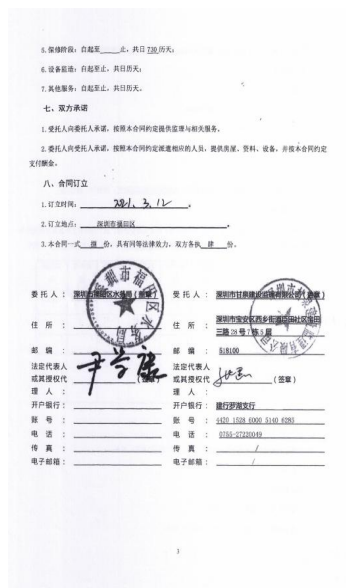 5.保修阶段：自起至____止，共日730历天；
6.设备监造：自起至止，共日历天；
7.其他服务：自起至止，共日历天。
七、双方承诺
1.受托人向委托人承诺，按照本合同约定提供监理与相关服务。
2.委托人向受托人承诺，按照本合同约定派遣相应的人员，提供房屋、资料、设备，并按本合同约定
支付酬金。
八、合同订立
1.订立时间：2021.3.12。
2.订立地点：深圳市福田区
3.本合同一式 份，具有同等法律效力，双方各执 肆 份。
委托人：深圳市福田区水务局（盖章）
住所：
邮编：
法定代表人
或其授权代（签章）
理人：
开户银行：
账号：
电话：
传真：
电子邮箱：
受托人：深圳市甘泉建设监理有限公司（盖章）
住所：深圳市宝安区西乡街道臣田社区宝田
三路28号7栋5层
邮编：518100
法定代表人
或其授权代（签章）
理人：
开户银行：建行罗湖支行
账号：4420 1528 6000 5140 6285
电话：0755-27220049
传真：/
电子邮箱：/
3